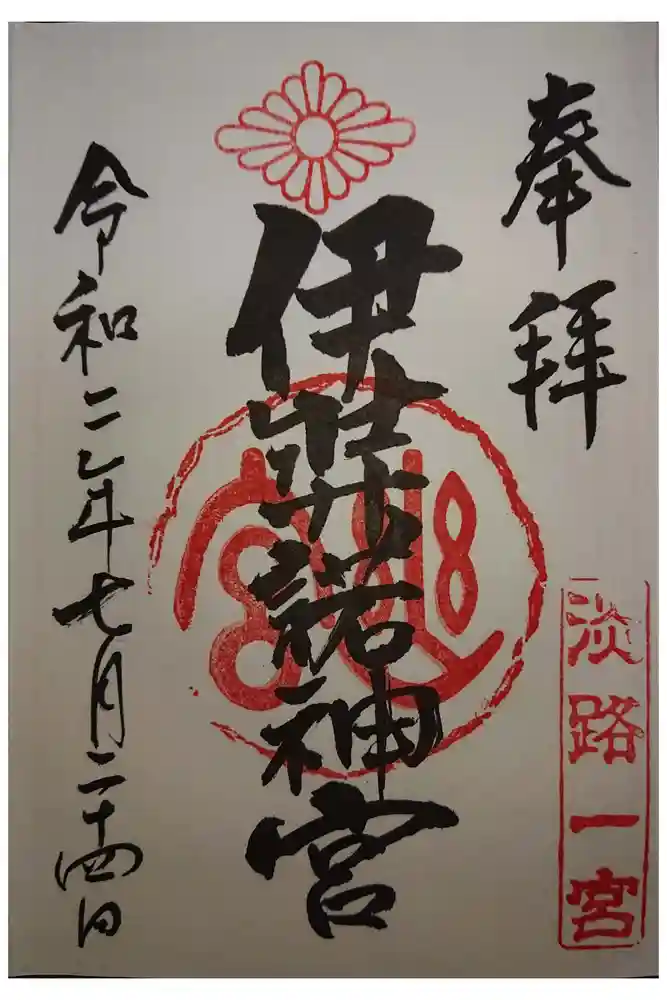 奉拝
淡路一宮
伊弉諾神宮
令和二年七月二十四日